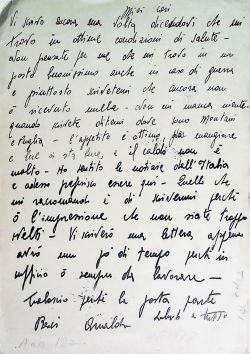 Miei cari
Vi scrivo ancora una volta dicendovi che mi
trovo in ottime condizioni di salute -
non pensate per me che mi trovo in un
posto buonissimo anche in caso di guerra
e piuttosto scrivetemi che ancora non
ò ricevuto nulla - non mi manca niente
quando scrivete ditemi dove sono
e l'appetito è ottimo, per mangiare
e si sta bene e il caldo non è
molto - Ho sentito le notizie dell'Italia
e adesso preferisco essere qui - Quello che
mi raccomando è di scrivermi perché
ò l'impressione che non siate troppo
svelti - Vi scriverò una lettera appena
avrò un po' di tempo perché in
ufficio ò sempre da lavorare -
perché la posta parte
Baci saluti a tutti